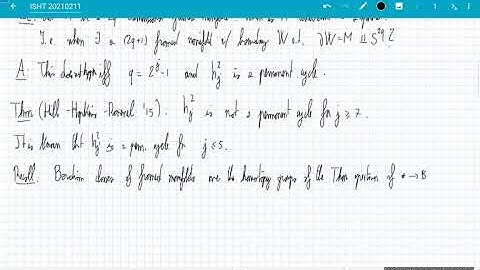 ISHT 20210211
I.e. when ∃ a (2q+1) framed manifold w/ boundary W s.t. ∂W = M ⨿ S^{2q}?
A: This doesn't happen iff q = 2^j - 1 and h_j^2 is a permanent cycle.
Thm (Hill-Hopkins-Ravenel '15). h_j^2 is not a permanent cycle for j ≥ 7.
It is known that h_j^2 is a perm. cycle for j ≤ 5.
Recall: Bordism classes of framed manifolds are the homotopy groups of the Thom spectrum of * → B